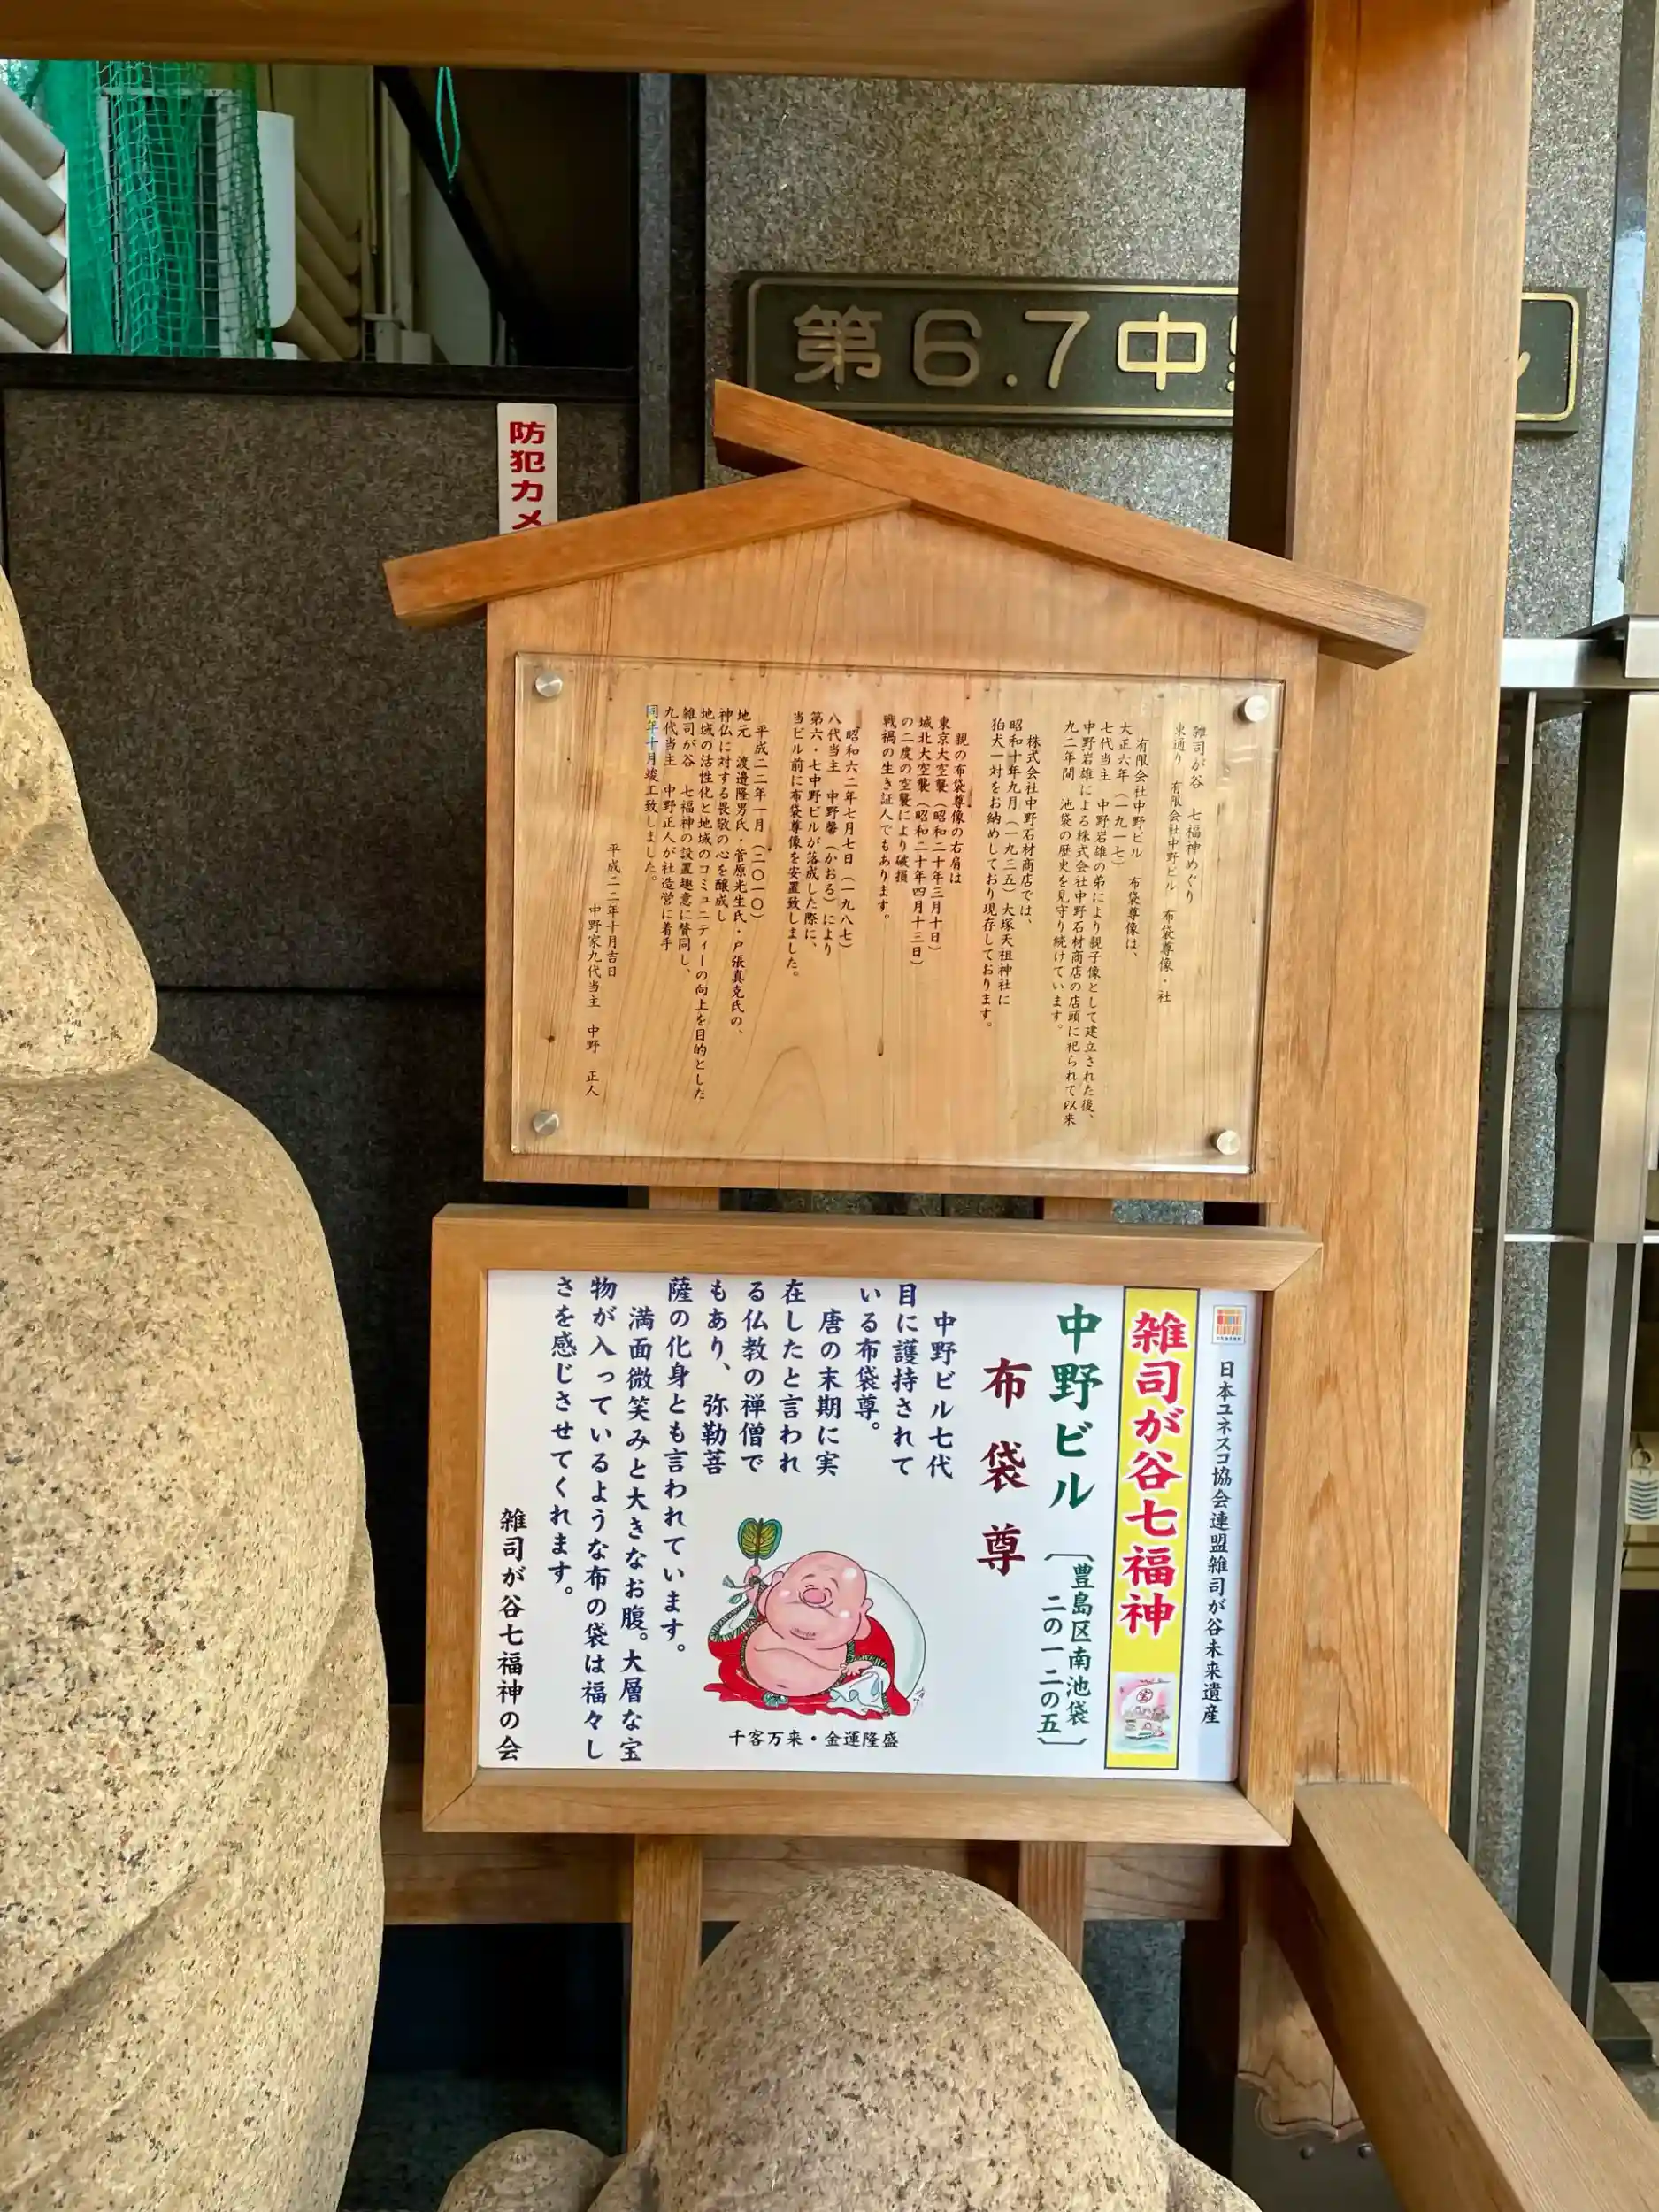 第6.7中
防犯カメ
雑司が谷 七福神めぐり
東通り 有限会社中野ビル 布袋尊像・社
有限会社中野ビル 布袋尊像は、
大正六年(一九一七)
七代当主 中野岩雄の弟により親子像として建立された後、
中野岩雄による株式会社中野石材商店の店頭に祀られて以来
九二年間 池袋の歴史を見守り続けています。
株式会社中野石材商店では、
昭和十年九月(一九三五)大塚天祖神社に
狛犬一対をお納めしており現存しております。
親の布袋尊像の右肩は
東京大空襲(昭和二十年三月十日)
城北大空襲(昭和二十年四月十三日)
の二度の空襲により破損
戦禍の生き証人でもあります。
昭和六二年七月七日(一九八七)
八代当主 中野馨(かおる)により
第六・七中野ビルが落成した際に、
当ビル前に布袋尊像を安置致しました。
平成二二年一月(二〇一〇)
地元 渡邉隆男氏・菅原光生氏・戸張真克氏の、
神仏に対する畏敬の心を醸成し
地域の活性化と地域のコミュニティーの向上を目的とした
雑司が谷 七福神の設置趣意に賛同し、
九代当主 中野正人が社造営に着手
同年十月竣工致しました。
平成二二年十月吉日
中野家九代当主 中野 正人
日本ユネスコ協会連盟雑司が谷未来遺産
雑司が谷七福神
中野ビル
〔豊島区南池袋
二の一二の五〕
布袋尊
中野ビル七代
目に護持されて
いる布袋尊。
唐の末期に実
在したと言われ
る仏教の禅僧で
もあり、弥勒菩
薩の化身とも言われています。
満面微笑みと大きなお腹。大層な宝
物が入っているような布の袋は福々し
さを感じさせてくれます。
千客万来・金運隆盛
雑司が谷七福神の会